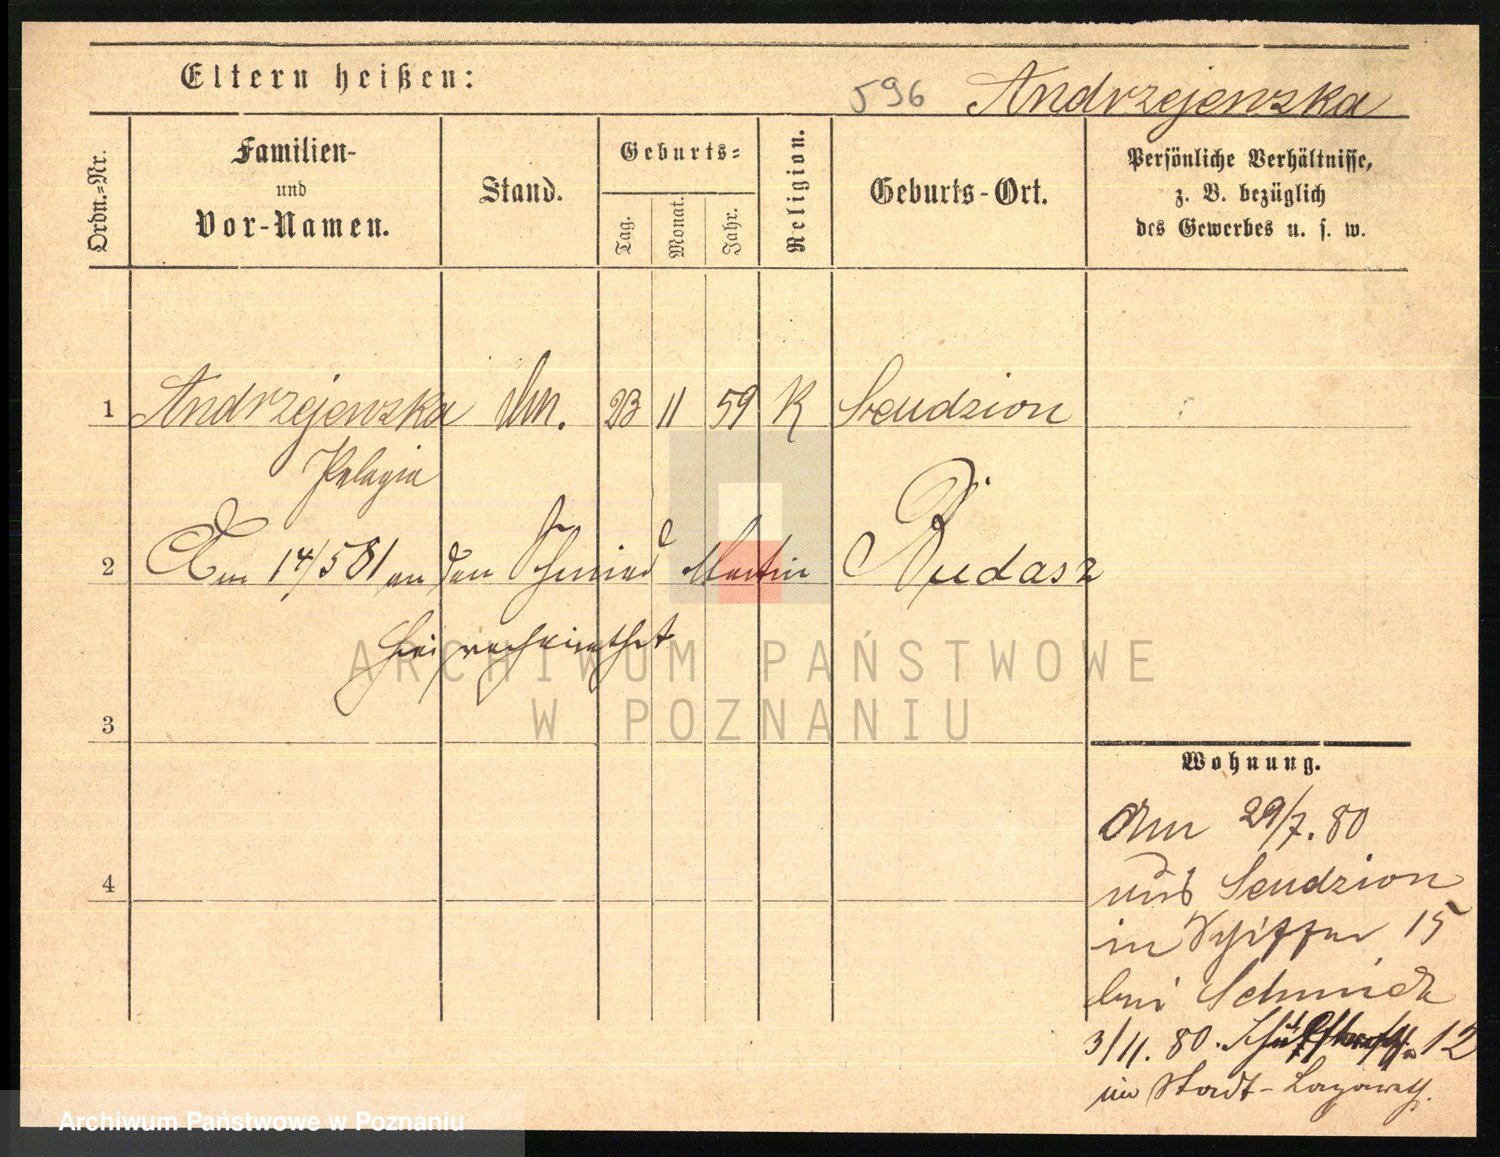 Eltern heißen:
596 Andrzejewska
Ordn.=Nr.
Familien-
und
Vor-Namen.
Stand.
Geburts=
Tag.
Monat.
Jahr.
Religion.
Geburts-Ort.
Persönliche Verhältnisse,
z. B. bezüglich
des Gewerbes u. s. w.
1 Andrzejewska Un. 23 11 59 K Sendzion
Pelagia
2 Am 14/5 81 an den Schmied Martin Rudasz
hier verheirathet
3
4
Wohnung.
Am 29/7. 80
aus Sendzion
in Schiffer 15
bei Schmidt
3/11. 80. 12
im Stadt-Lazareth.
ARCHIWUM PAŃSTWOWE
W POZNANIU
Archiwum Państwowe w Poznaniu